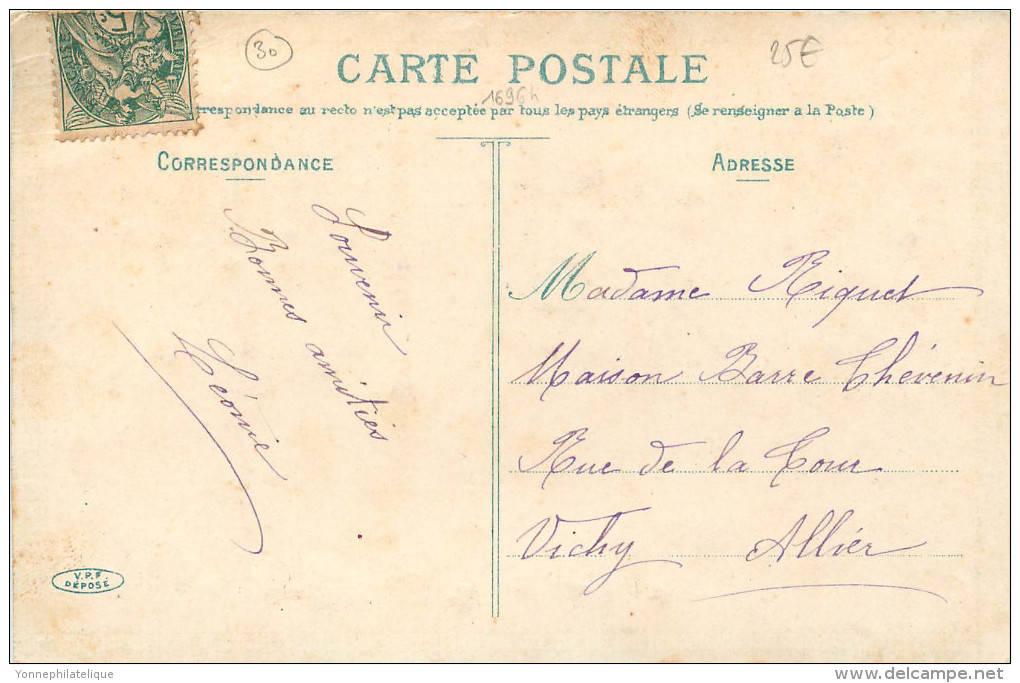 30
25€
CARTE POSTALE
1696h
respondance au recto n'est pas acceptée par tous les pays étrangers (Se renseigner a la Poste)
CORRESPONDANCE
ADRESSE
Souvenir
Bonnes amitiés
Léonie
Madame Riquet
Maison Barre Thévenin
Rue de la Tour
Vichy Allier
V.P.F
DÉPOSÉ
Yonnephilatelique
www.delcampe.net